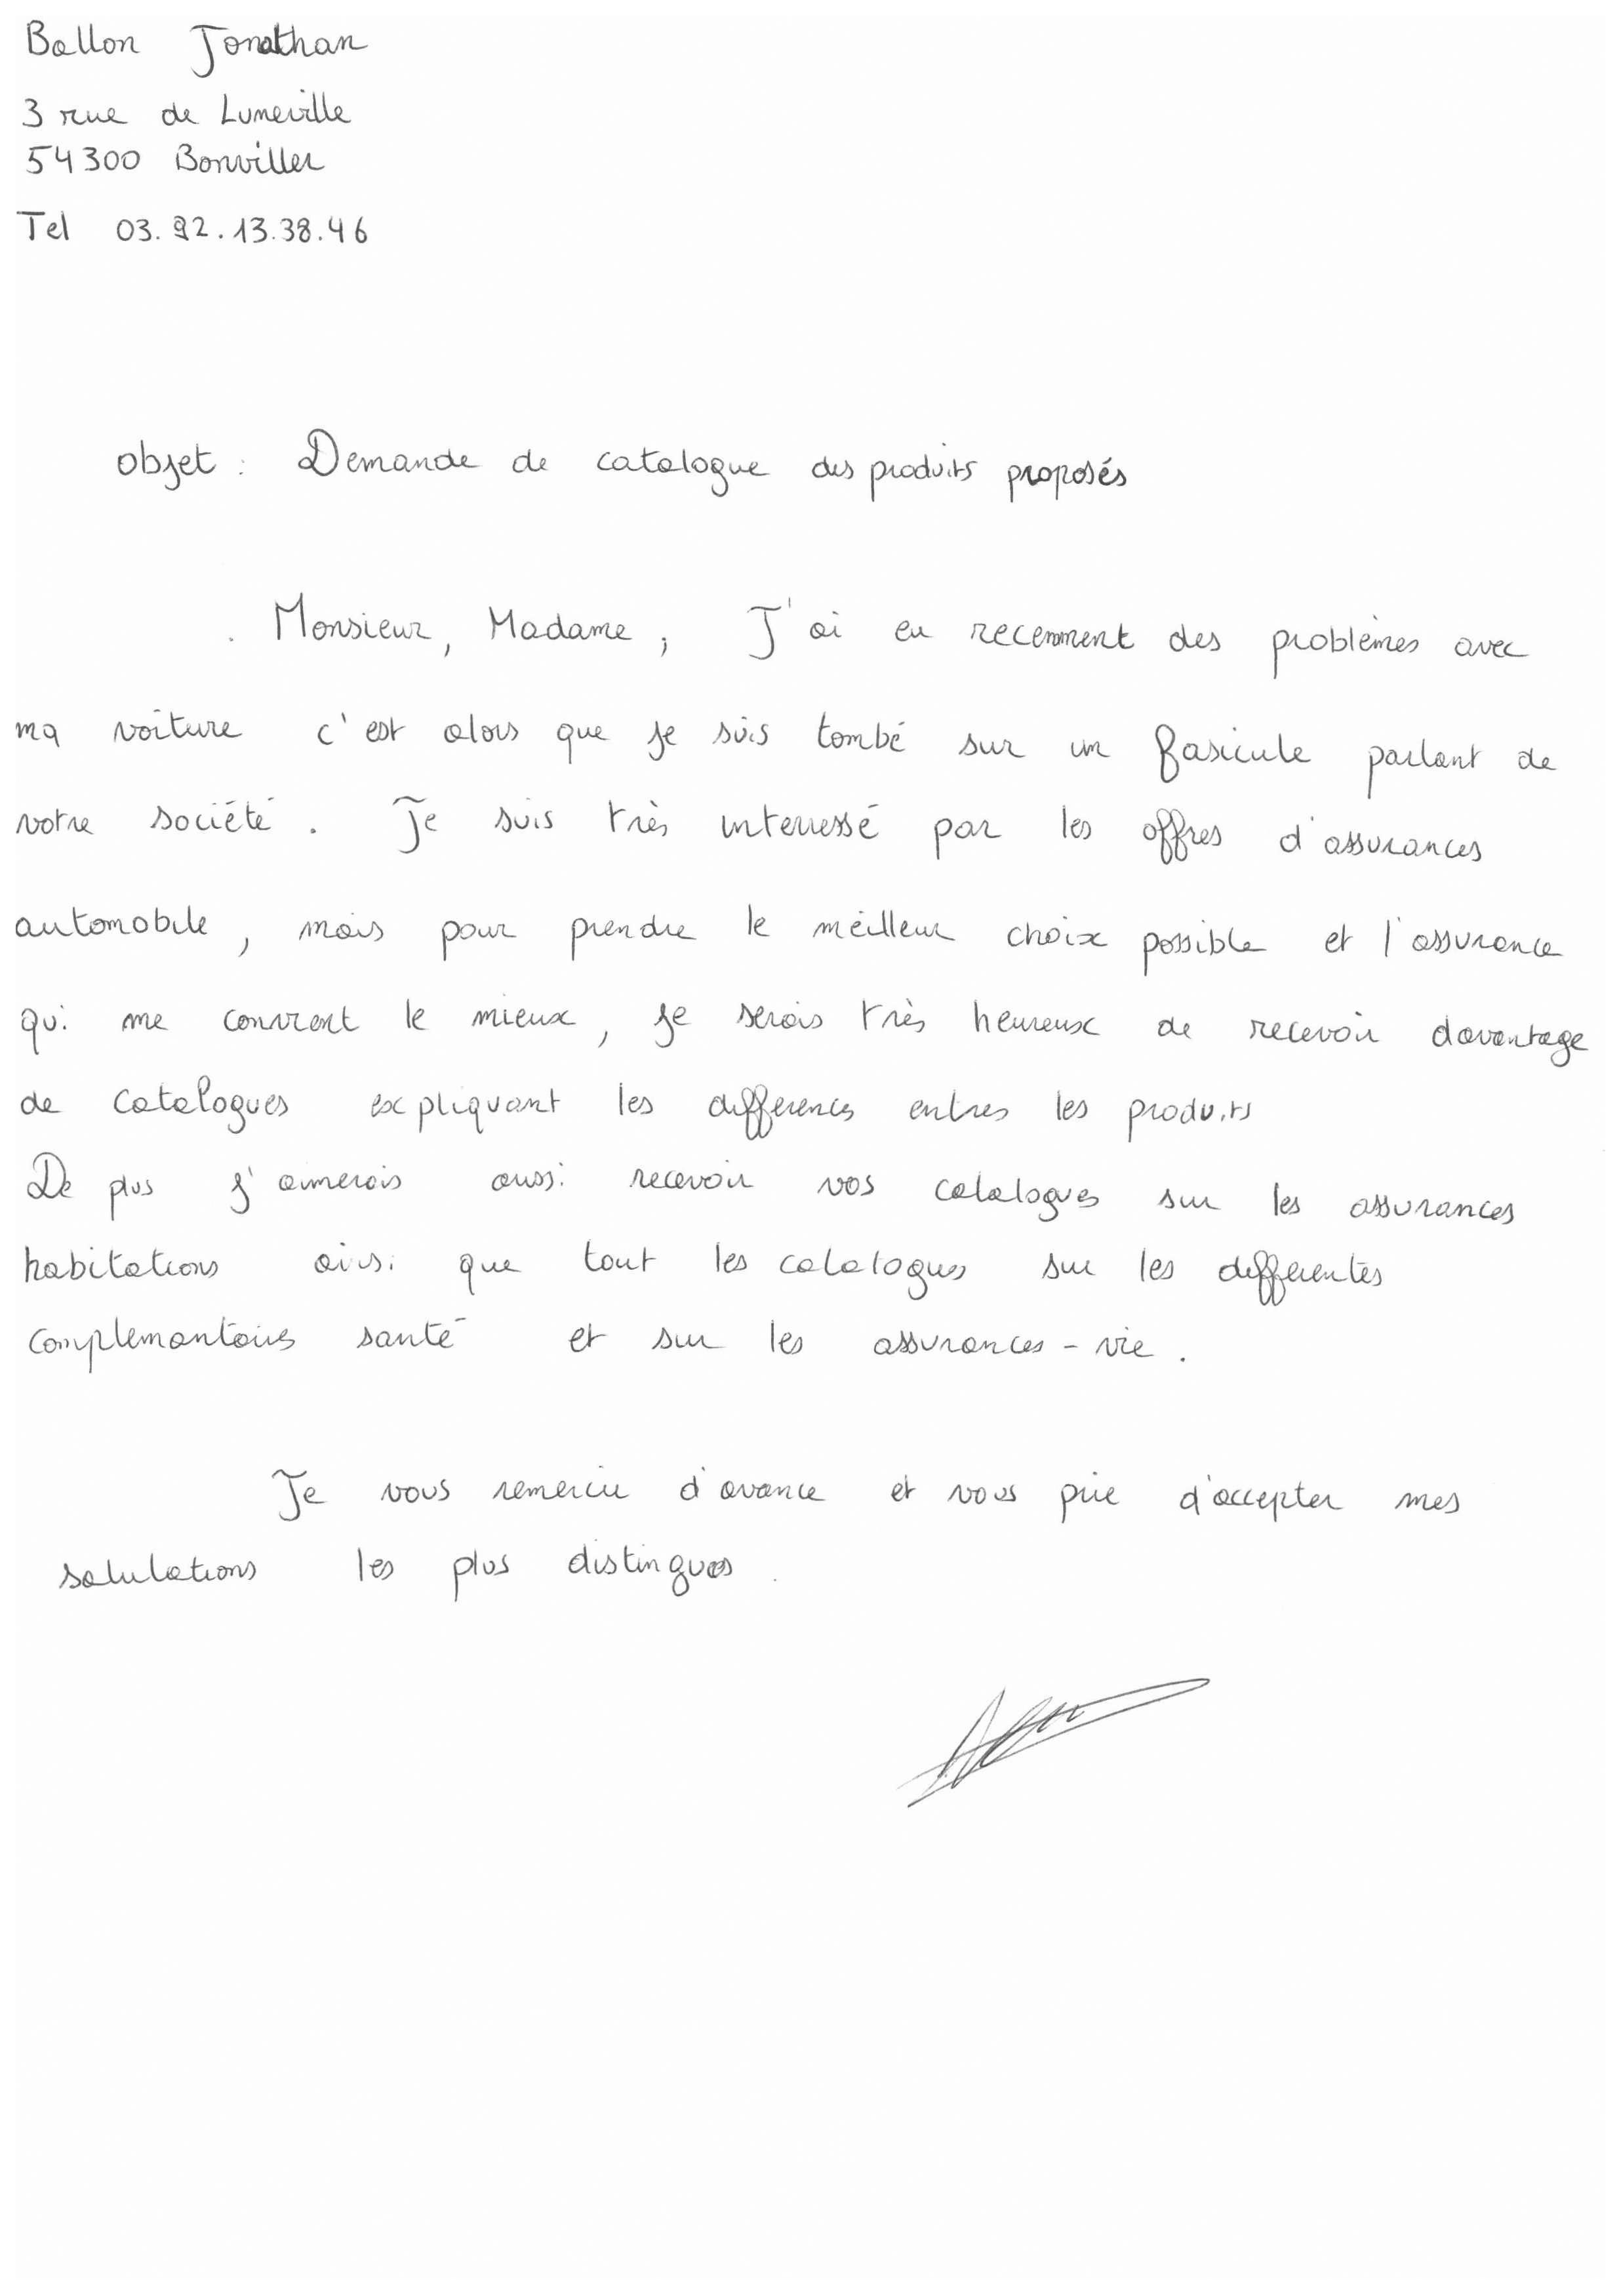 Ballon Jonathan
3 rue de Luneville
54300 Bonviller
Tel 03.92.13.38.46
objet : Demande de catalogue des produits proposés
Monsieur, Madame, J'ai eu recemment des problèmes avec
ma voiture c'est alors que je suis tombé sur un fasicule parlant de
votre société. Je suis très interressé par les offres d'assurances
automobile, mais pour prendre le meilleur choix possible et l'assurance
qui me convient le mieux, je serais très heureux de recevoir davantage
de catalogues expliquant les differences entres les produits
De plus j'aimerais aussi recevoir vos catalogues sur les assurances
habitations ainsi que tout les catalogues sur les differentes
complemantaires santé et sur les assurances-vie.
Je vous remercie d'avance et vous prie d'accepter mes
salutations les plus distingues.